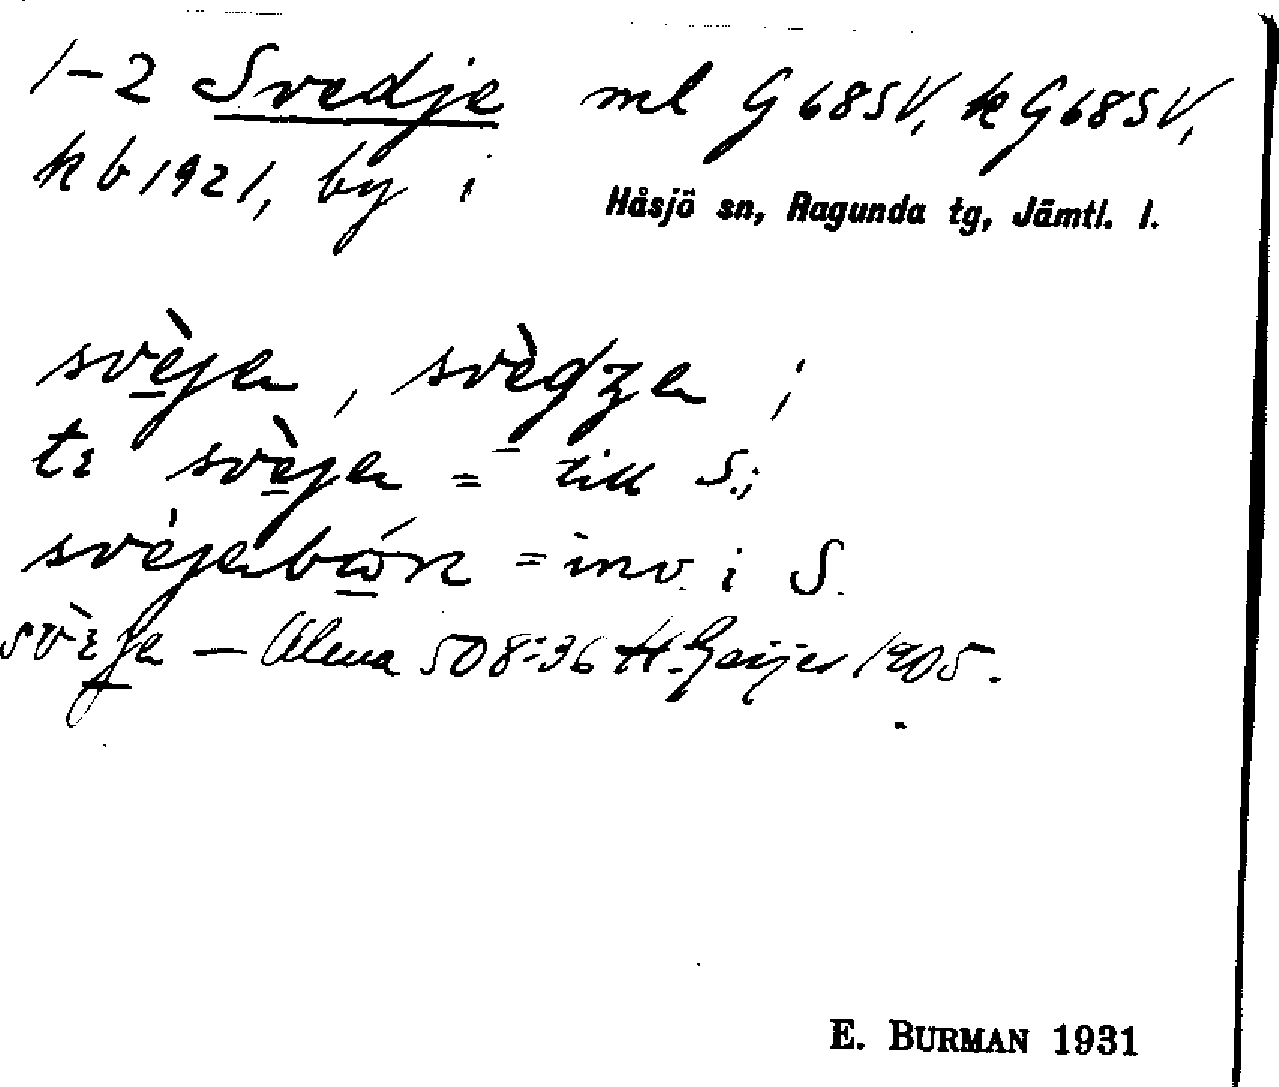 1-2 Svedje ml G68SV, k G68SV,
kb 1921, by i
Håsjö sn, Ragunda tg, Jämtl. l.
svèjen, svèdʒen;
te svèjen = till S.;
svèjenbωʹn = inv. i S.
Ulma 508:36 H. Geijer 1905.
E. BURMAN 1931